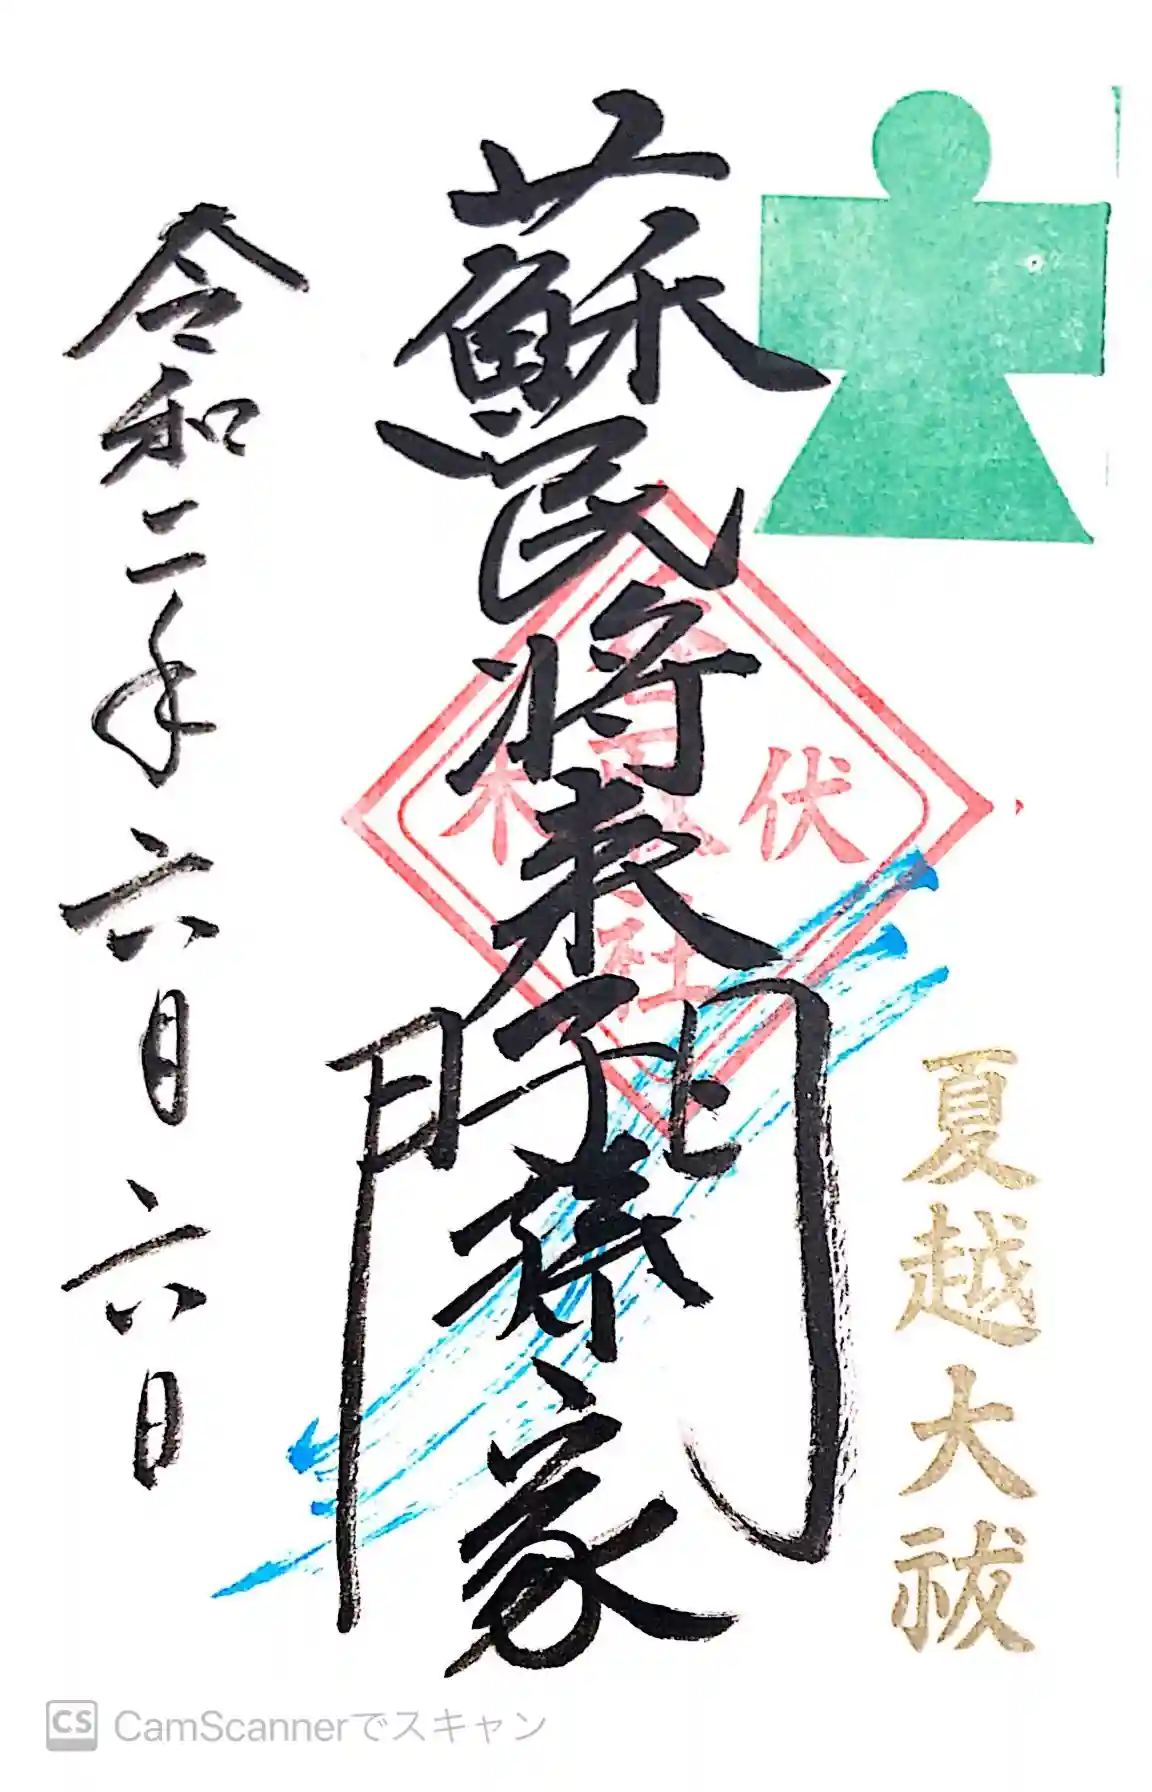 夏越大祓
蘇民将来子孫家門
伏木
社
令和二年六月六日
CS CamScannerでスキャン